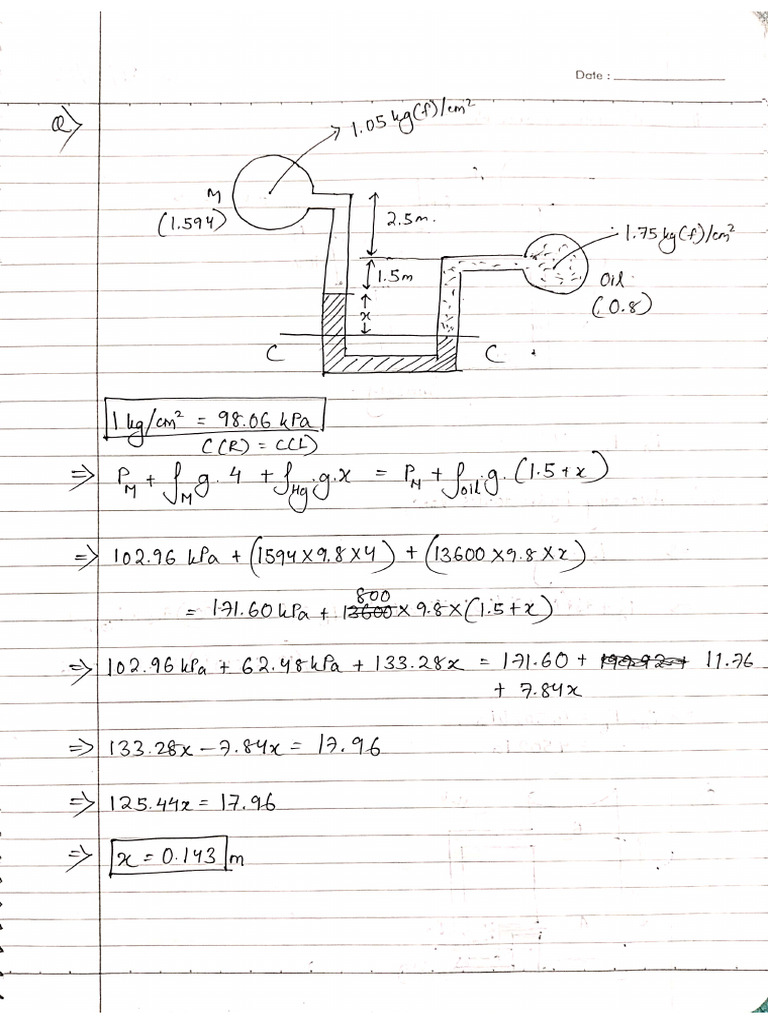 Date :
Q)
1.05 kg(f)/cm²
M
(1.594)
2.5m.
1.75kg(f)/cm²
1.5m
Oil
(0.8)
x
C C
1 kg/cm² = 98.06 kPa
C(R) = C(L)
⇒ P_M + ρ_M g. 4 + ρ_Hg.g.x = P_N + ρ_oil.g. (1.5+x)
⇒ 102.96 kPa + (1594×9.8×4) + (13600×9.8×x)
= 171.60 kPa + 800 × 9.8×(1.5+x)
⇒ 102.96 kPa + 62.48 kPa + 133.28x = 171.60 + 11.76
+ 7.84x
⇒ 133.28x – 7.84x = 17.96
⇒ 125.44x = 17.96
⇒ x = 0.143 m